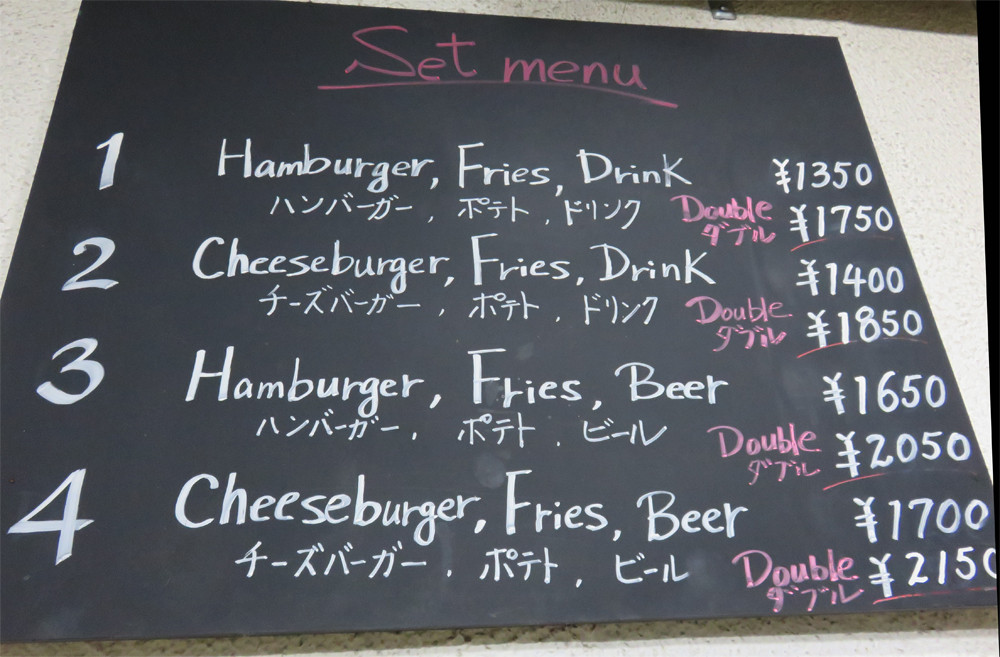 Set menu
1 Hamburger, Fries, Drink ¥1350
ハンバーガー, ポテト, ドリンク Double ダブル ¥1750
2 Cheeseburger, Fries, Drink ¥1400
チーズバーガー, ポテト, ドリンク Double ダブル ¥1850
3 Hamburger, Fries, Beer ¥1650
ハンバーガー, ポテト, ビール Double ダブル ¥2050
4 Cheeseburger, Fries, Beer ¥1700
チーズバーガー, ポテト, ビール Double ダブル ¥2150